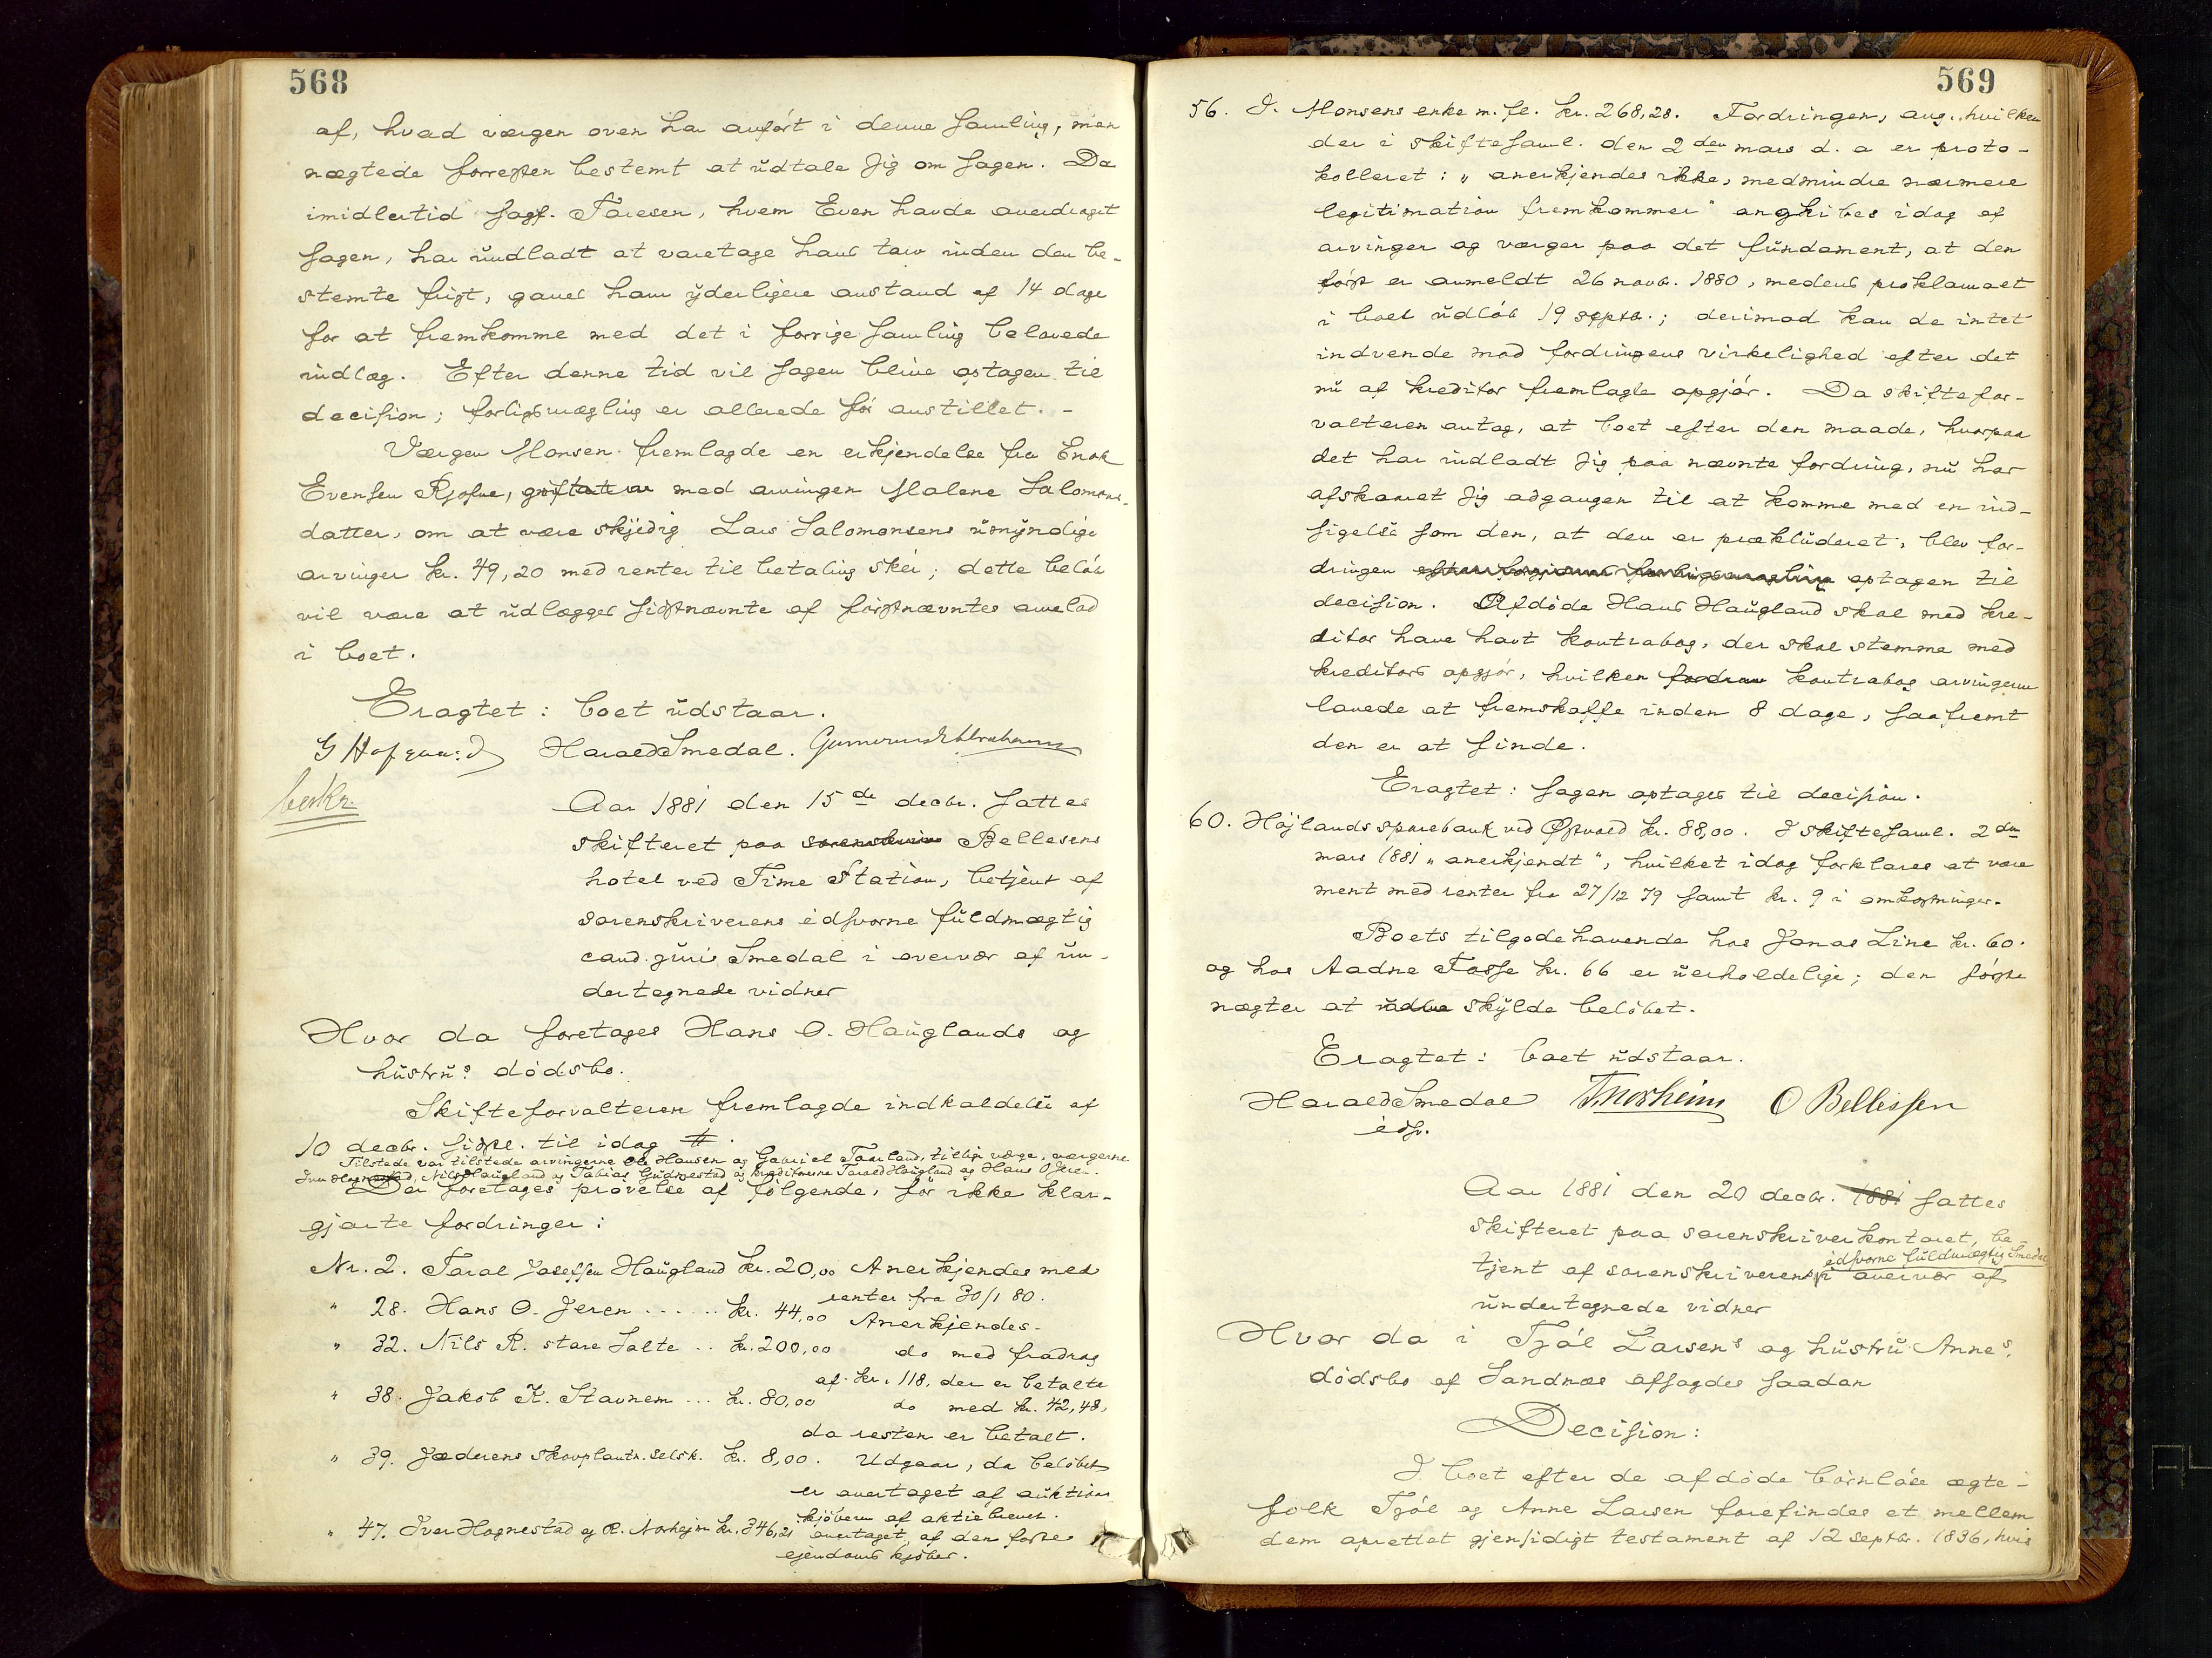 568
af, hvad vergen oven har anført i denne samling, men
nægtede forresten bestemt at udtale sig om sagen. Da
imidlertid sagf. Taresen, hvem Even havde overdraget
sagen, har undladt at varetage hans tarv inden den be-
stemte frist, gaves ham yderligere anstand af 14 dage
for at fremkomme med det i forrige samling belovede
indlæg. Efter denne tid vil sagen blive optagen til
decision; forligsmægling er allerede før anstillet. -
Værgen Monsen fremlagde en erkjendelse fra Enok
Evensen med arvingen Malene Salomons-
datter, om at være skyldig Lars Salomonsens umyndige
arvinger kr. 49,20 med renter til betaling sker; dette beløb
vil være at udlægges sidstnævnte af førstnævntes arvelod
i boet.
Eragtet: boet udstaar.
Harald Smedal.
beskr.
Aar 1881 den 15de decbr. sattes
skifteret paa sorenskriver Bellesens
hotel ved Time Station, betjent af
sorenskriverens edsvorne fuldmægtig
cand. juris Smedal i overvær af un-
dertegnede vidner
Hvor da foretoges Hans O. Hauglands og
hustrus dødsbo.
Skifteforvalteren fremlagde indkaldelse af
10 decbr. sidstl. til idag
Tilstede var tilstede arvingerne Ole Hansen og Gabriel Taarland, tillige værge, værgerne
Iver Hognestad, Nils Haugland og Tobias Gudmestad og kreditorerne Tarald Haugland og Hans O. Jeren.
Der foretoges prøvelse af følgende, før ikke klar-
gjorte fordringer:
Nr. 2. Taral Josefsen Haugland kr. 20,00 Anerkjendes med
renter fra 30/1 80.
" 28. Hans O. Jeren ...... kr. 44,00 Anerkjendes.
" 32. Nils R. store Salte .. kr. 200,00 do med fradrag
af kr. 118, der er betalte
" 38. Jakob K. Stavnem ... kr. 80,00 do med kr. 42,48,
da resten er betalt.
" 39. Jæderens skovplantn. selsk. kr. 8,00. Udgaar, da beløbet
er overtaget af auktions
kjøberen af aktiebrevet.
" 47. Iver Hognestad og R. Norheim kr. 346,21 overtaget af den faste
ejendoms kjøber.
569
56. J. Monsens enke m. fl. kr. 268,28. Fordringen, ang. hvilken
der i skiftesaml. den 2den mars d. a er proto-
kolleret: "anerkjendes ikke, medmindre nærmere
legitimation fremkommer" angribes idag af
arvinger og værger paa det fundament, at den
først er anmeldt 26 novbr. 1880, medens proklamaet
i boet udløb 19 septbr.; derimod kan de intet
indvende mod fordringens virkelighed efter det
nu af kreditor fremlagte opgjør. Da skiftefor-
valteren antog, at boet efter den maade, hvorpaa
det har indladt sig paa nævnte fordring, nu har
afskaaret sig adgangen til at komme med en ind-
sigelse som den, at den er prækluderet, blev for-
dringen efter forgjæves forligsmægling optagen til
decision. Afdøde Hans Haugland skal med kre-
ditor have havt kontrabog, der skal stemme med
kreditors opgjør, hvilken fordrin kontrabog arvingerne
lovede at fremskaffe inden 8 dage, saafremt
den er at finde.
Eragtet: sagen optages til decision.
60. Højlands sparebank ved Østvold kr. 88,00. I skiftesaml. 2den
mars 1881 "anerkjendt", hvilket idag forklares at være
ment med renter fra 27/12 79 samt kr. 9 i omkostninger.
Boets tilgodehavende hos Jonas Line kr. 60.
og hos Aadne Fosse kr. 66 er uerholdelige; den første
nægter at skylde beløbet.
Eragtet: boet udstaar.
Harald Smedal T. Norheim O Bellessen
edsv.
Aar 1881 den 20 decbr. 1881 sattes
skifteret paa sorenskriverkontoret, be-
tjent af sorenskriverens edsvorne fuldmægtig Smedal i overvær af
undertegnede vidner
Hvor da i Tjøl Larsens og hustru Annes
dødsbo af Sandnæs afsagdes saadan
Decision:
I boet efter de afdøde barnløse ægte-
folk Tjøl og Anne Larsen forefindes et mellem
dem oprettet gjensidigt testament af 12 septbr. 1836, hvis